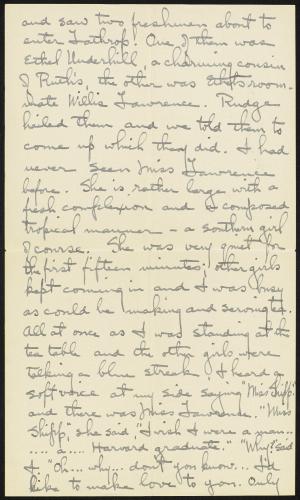 and saw two freshmen about to
enter Lathrop. One of them was
Ethel Underhill, a charming cousin
of Ruth's, the other was Ethel's room-
mate Willie Lawrence. Rudge
hailed them and we told them to
come up which they did. I had
never seen Miss Lawrence
before. She is rather large with a
fresh complexion and of composed
tropical manner – a southern girl
of course. She was very quiet for
the first fifteen minutes; other girls
kept coming in and I was busy
as could be making and serving tea.
All at once as I was standing at the
tea table and the other girls were
talking a blue streak, I heard a
soft voice at my side saying "Miss Shipp"
and there was Miss Lawrence. "Miss
Shipp," she said, "I wish I were a man....
.... a.... Harvard graduate." "Why?" said
I. "Oh... why... don't you know... I'd
like to make love to you. Only